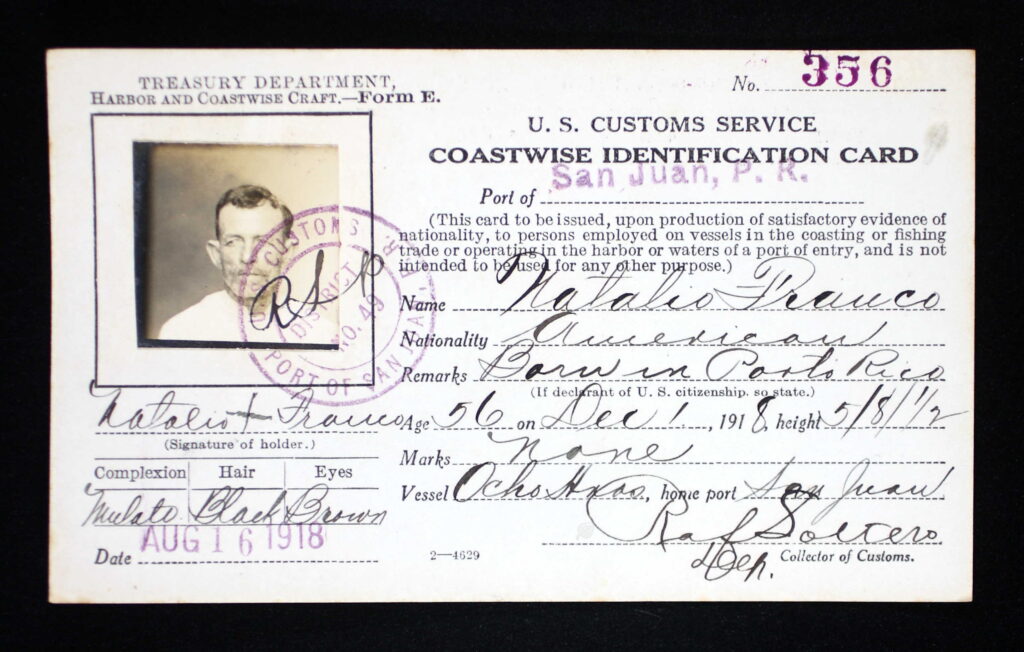 TREASURY DEPARTMENT,
HARBOR AND COASTWISE CRAFT.—Form E.
No. 356
U. S. CUSTOMS SERVICE
COASTWISE IDENTIFICATION CARD
Port of San Juan, P. R.
(This card to be issued, upon production of satisfactory evidence of
nationality, to persons employed on vessels in the coasting or fishing
trade or operating in the harbor or waters of a port of entry, and is not
intended to be used for any other purpose.)
Name Natalio Franco
Nationality American
Remarks Born in Porto Rico
(If declarant of U. S. citizenship, so state.)
Age 56 on Dec 1, 1918, height 5/8/1/2
Marks None
Vessel Ocho Hnos, home port San Juan
Raf Soltero
Dep. Collector of Customs.
2—4629
U.S. CUSTOMS
DISTRICT
NO. 49
PORT OF SAN JUAN, P.R.
R S
Natalio + Franco
(Signature of holder.)
Complexion Hair Eyes
Mulato Black Brown
Date AUG 16 1918